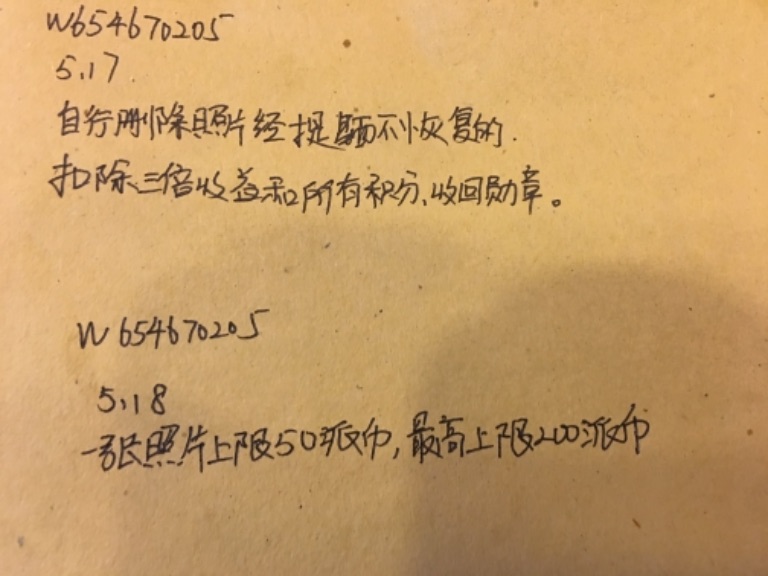 W654670205
5.17
自行删除照片经提醒不恢复的.
扣除三倍收益和所有积分、收回勋章。
W654670205
5.18
一张照片上限50派币,最高上限200派币